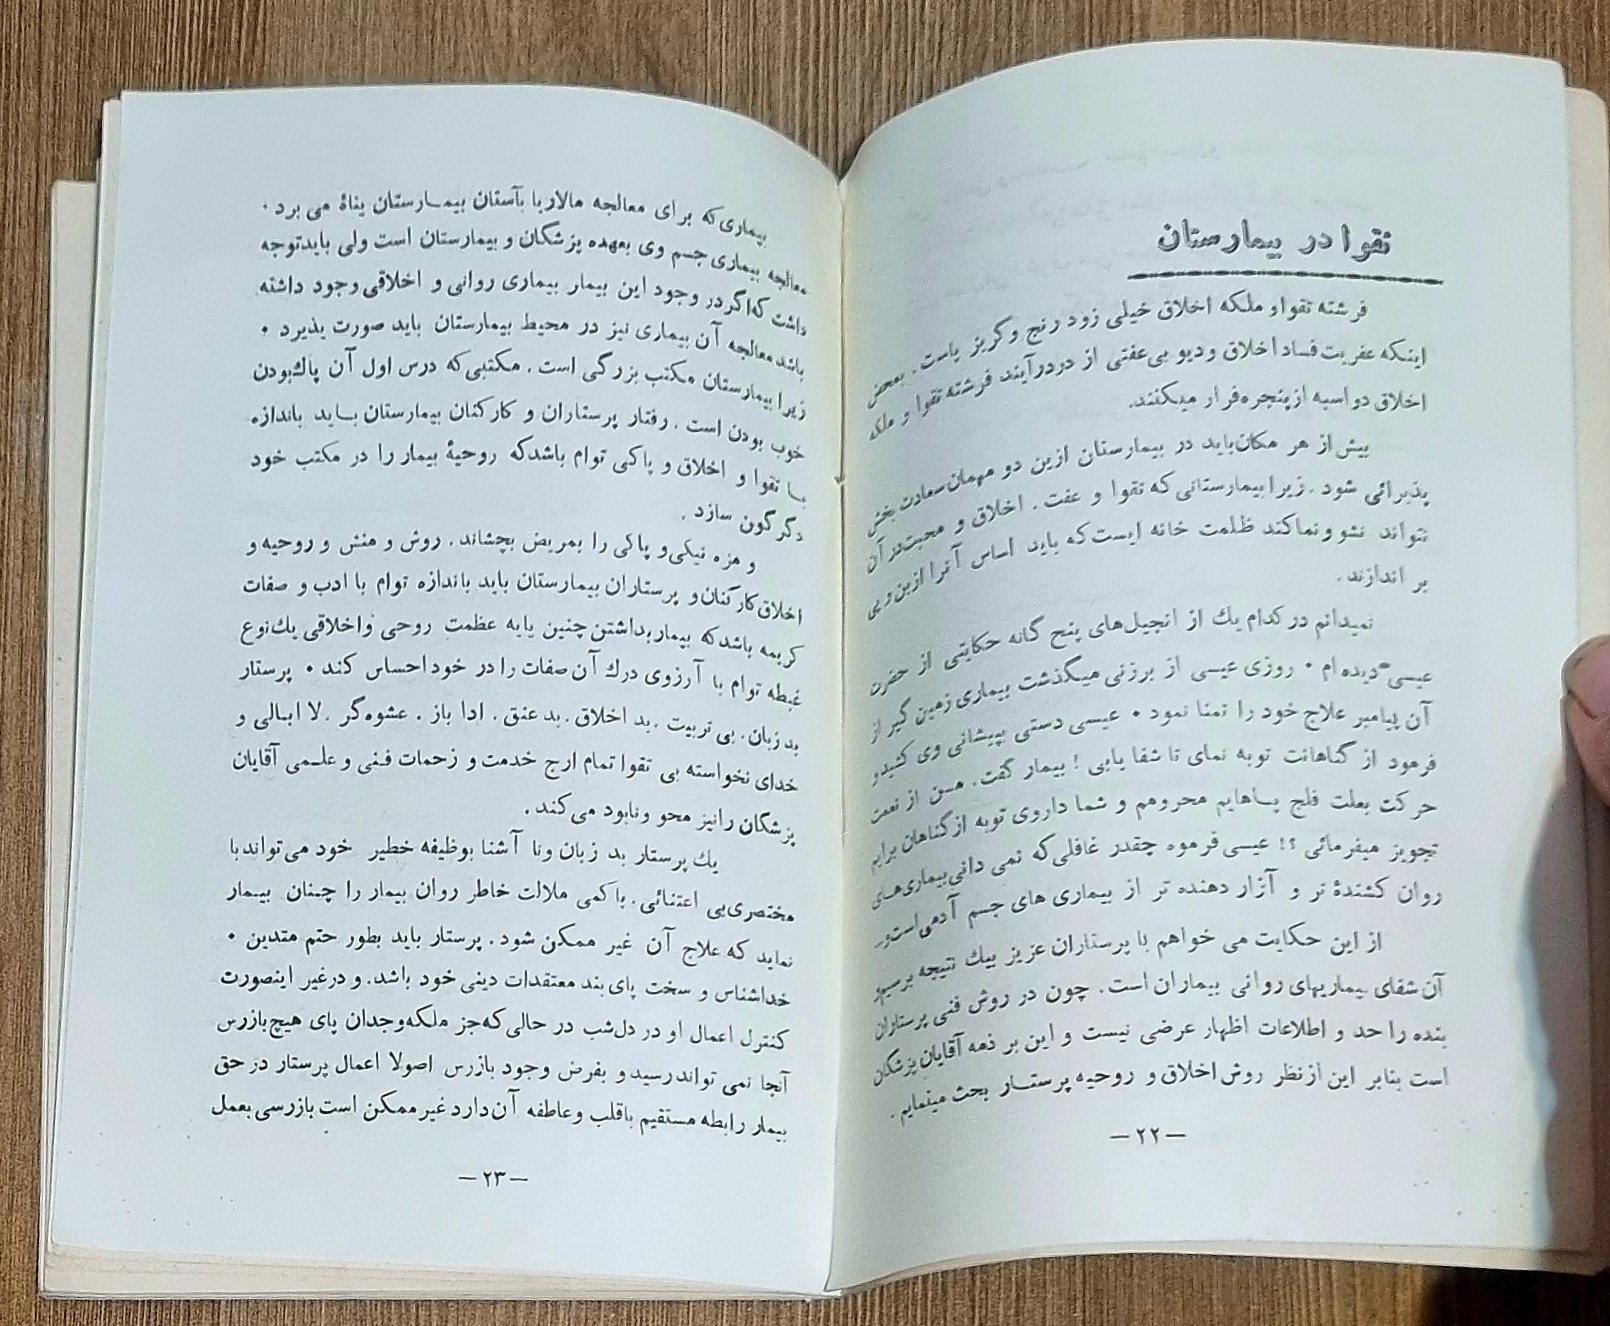 تقوا در بیمارستان
فرشته تقوا و ملکه اخلاق خیلی زود رنج و گریز پاست . بمحض
اینکه عفریت فساد اخلاق و دیو بی‌عفتی از در درآیند فرشته تقوا و ملکه
اخلاق دو اسبه از پنجره فرار میکنند.
بیش از هر مکان باید در بیمارستان ازین دو مهمان سعادت بخش
پذیرائی شود . زیرا بیمارستانی که تقوا و عفت . اخلاق و محبت در آن
نتواند نشو و نما کند ظلمت خانه ایست که باید اساس آنرا ازبن و پی
بر اندازند .
نمیدانم در کدام یك از انجیل‌های پنج گانه حکایتی از حضرت
عیسی دیده ام . روزی عیسی از برزنی میگذشت بیماری زمین گیر از
آن پیامبر علاج خود را تمنا نمود . عیسی دستی بپیشانی وی کشید و
فرمود از گناهانت توبه نمای تا شفا یابی ! بیمار گفت . من از نعمت
حرکت بعلت فلج پاهایم محرومم و شما داروی توبه از گناهان برایم
تجویز میفرمائی ؟! عیسی فرموه چقدر غافلی که نمی دانی بیماری‌های
روان کشندۀ تر و آزار دهنده تر از بیماری های جسم آدمی است و
از این حکایت می خواهم با پرستاران عزیز بیك نتیجه برسیم و
آن شفای بیماریهای روانی بیماران است . چون در روش فنی پرستاران
بنده را حد و اطلاعات اظهار عرضی نیست و این بر ذمه آقایان پزشگان
است بنابر این از نظر روش اخلاق و روحیه پرستار بحث مینمایم .
— ۲۲ —
بیماری که برای معالجه مالاریا بآستان بیمارستان پناۀ می برد .
معالجه بیماری جسم وی بعهده پزشگان و بیمارستان است ولی باید توجه
داشت که اگر در وجود این بیمار بیماری روانی و اخلاقی وجود داشته
باشد معالجه آن بیماری نیز در محیط بیمارستان باید صورت پذیرد .
زیرا بیمارستان مکتب بزرگی است . مکتبی که درس اول آن پاك بودن
خوب بودن است . رفتار پرستاران و کارکنان بیمارستان باید باندازه
با تقوا و اخلاق و پاکی توام باشد که روحیۀ بیمار را در مکتب خود
دگرگون سازد .
و مزه نیکی و پاکی را بمریض بچشاند . روش و منش و روحیه و
اخلاق کارکنان و پرستاران بیمارستان باید باندازه توام با ادب و صفات
کریمه باشد که بیمار بداشتن چنین پایه عظمت روحی و اخلاقی یك نوع
غبطه توام با آرزوی درك آن صفات را در خود احساس کند . پرستار
بد زبان . بی تربیت . بد اخلاق . بد عنق . ادا باز . عشوه گر . لا ابالی و
خدای نخواسته بی تقوا تمام ارج خدمت و زحمات فنی و علمی آقایان
پزشگان را نیز محو و نابود می کند .
یك پرستار بد زبان ونا آشنا بوظیفه خطیر خود می تواند با
مختصری بی اعتنائی . با کمی ملالت خاطر روان بیمار را چنان بیمار
نماید که علاج آن غیر ممکن شود . پرستار باید بطور حتم متدین .
خداشناس و سخت پای بند معتقدات دینی خود باشد . و درغیر اینصورت
کنترل اعمال او در دل شب در حالی که جز ملکه وجدان پای هیچ بازرس
آنجا نمی تواند رسید و بفرض وجود بازرس اصولا اعمال پرستار در حق
بیمار رابطه مستقیم باقلب و عاطفه آن دارد غیر ممکن است بازرسی بعمل
— ۲۳ —